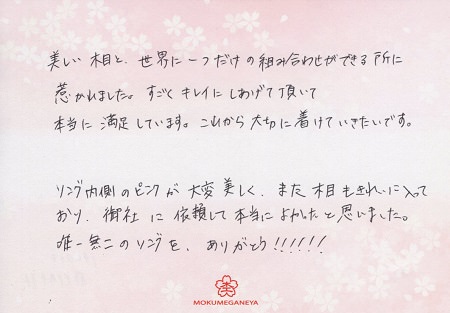 美しい木目と、世界に一つだけの組み合わせができる所に
惹かれました。すごくキレイにしあげて頂いて
本当に満足しています。これから大切に着けていきたいです。
リング内側のピンクが大変美しく、また木目もきれいに入って
おり、御社に依頼して本当によかったと思いました。
唯一無二のリングを、ありがとう!!!!!!
MOKUMEGANEYA